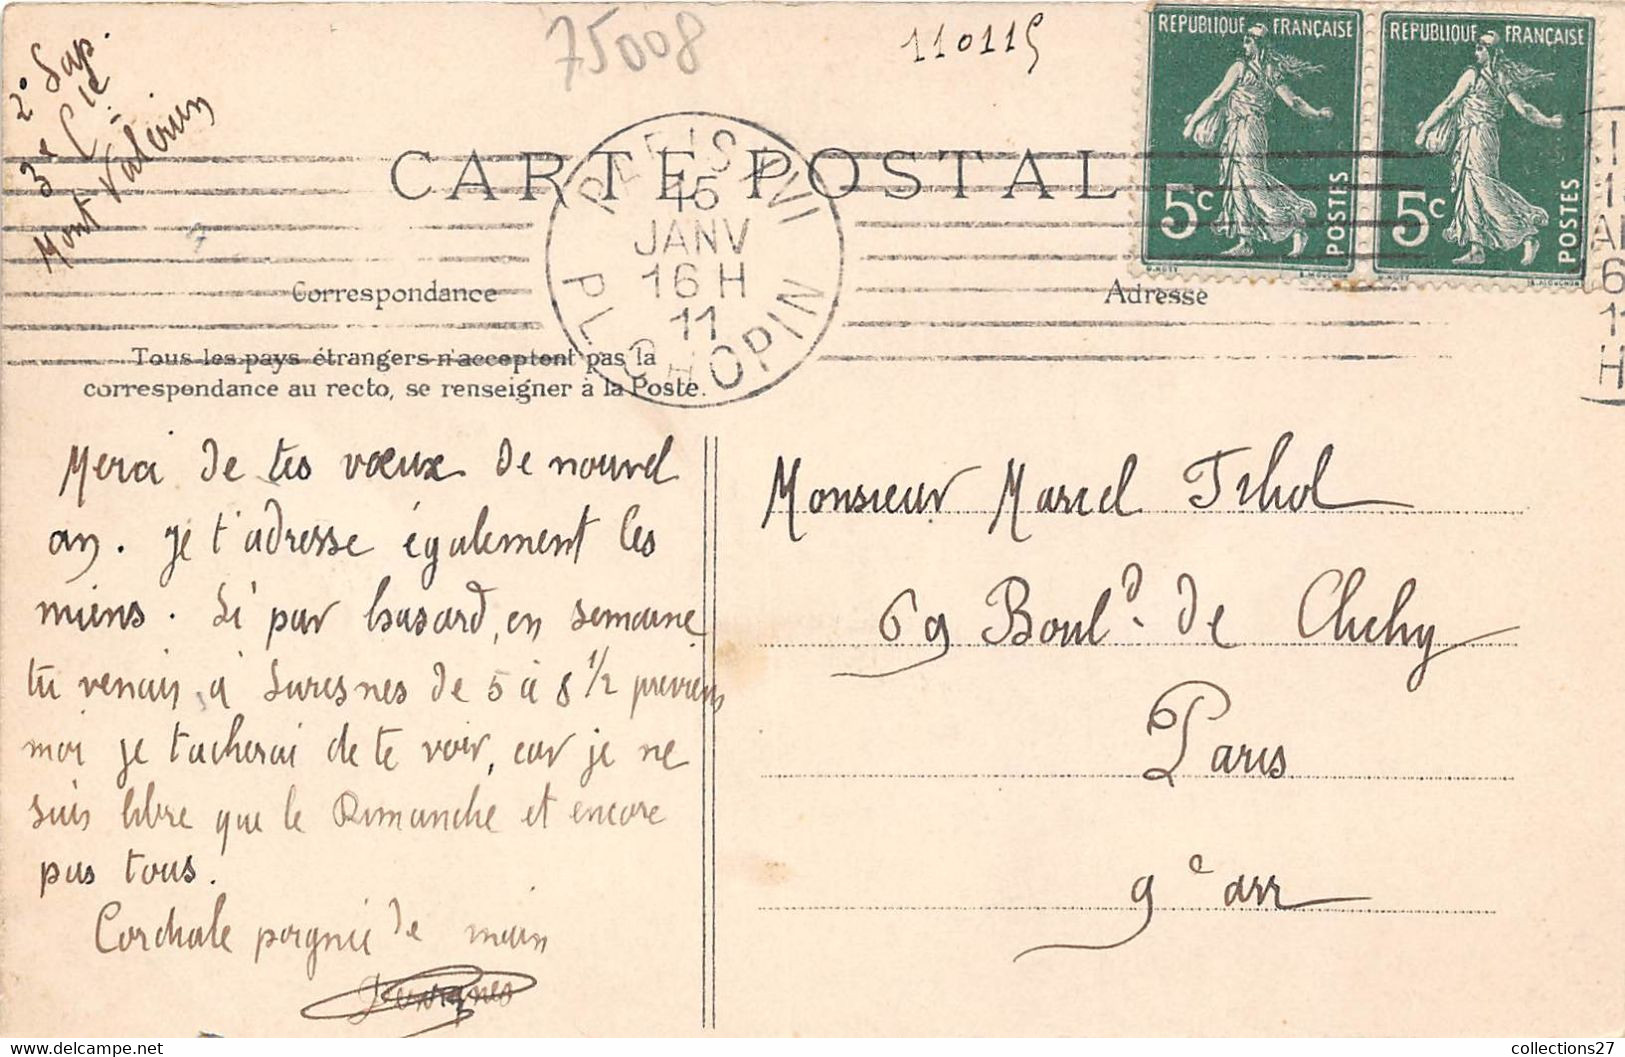 75008
110115
2° Sap.
3e Cie
Mont Valérien
REPUBLIQUE FRANÇAISE
5c POSTES
REPUBLIQUE FRANÇAISE
5c POSTES
CARTE POSTALE
15
JANV
16 H
11
PL CHOPIN
Correspondance
Adresse
Tous les pays étrangers n'acceptent pas la
correspondance au recto, se renseigner à la Poste.
Merci de tes vœux de nouvel
an. Je t'adresse également les
miens. Si par hasard, en semaine
tu venais à Suresnes de 5 à 8 1/2 préviens
moi je tacherai de te voir, car je ne
suis libre que le Dimanche et encore
pas tous.
Cordiale poignée de main
Monsieur Marcel
69 Boul.d de Clichy
Paris
9e arr
collections27